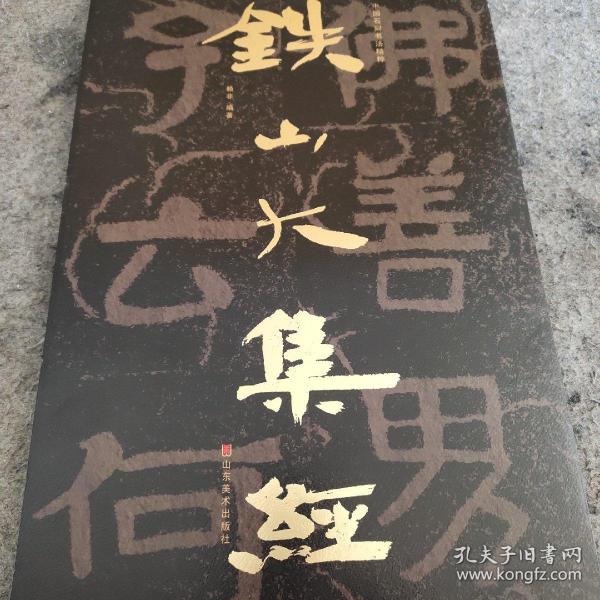 鉄山大集經
中国石刻书法精粹
赖非 编著
山东美术出版社
佛善男
子云何
孔夫子旧书网
www.kongfz.com